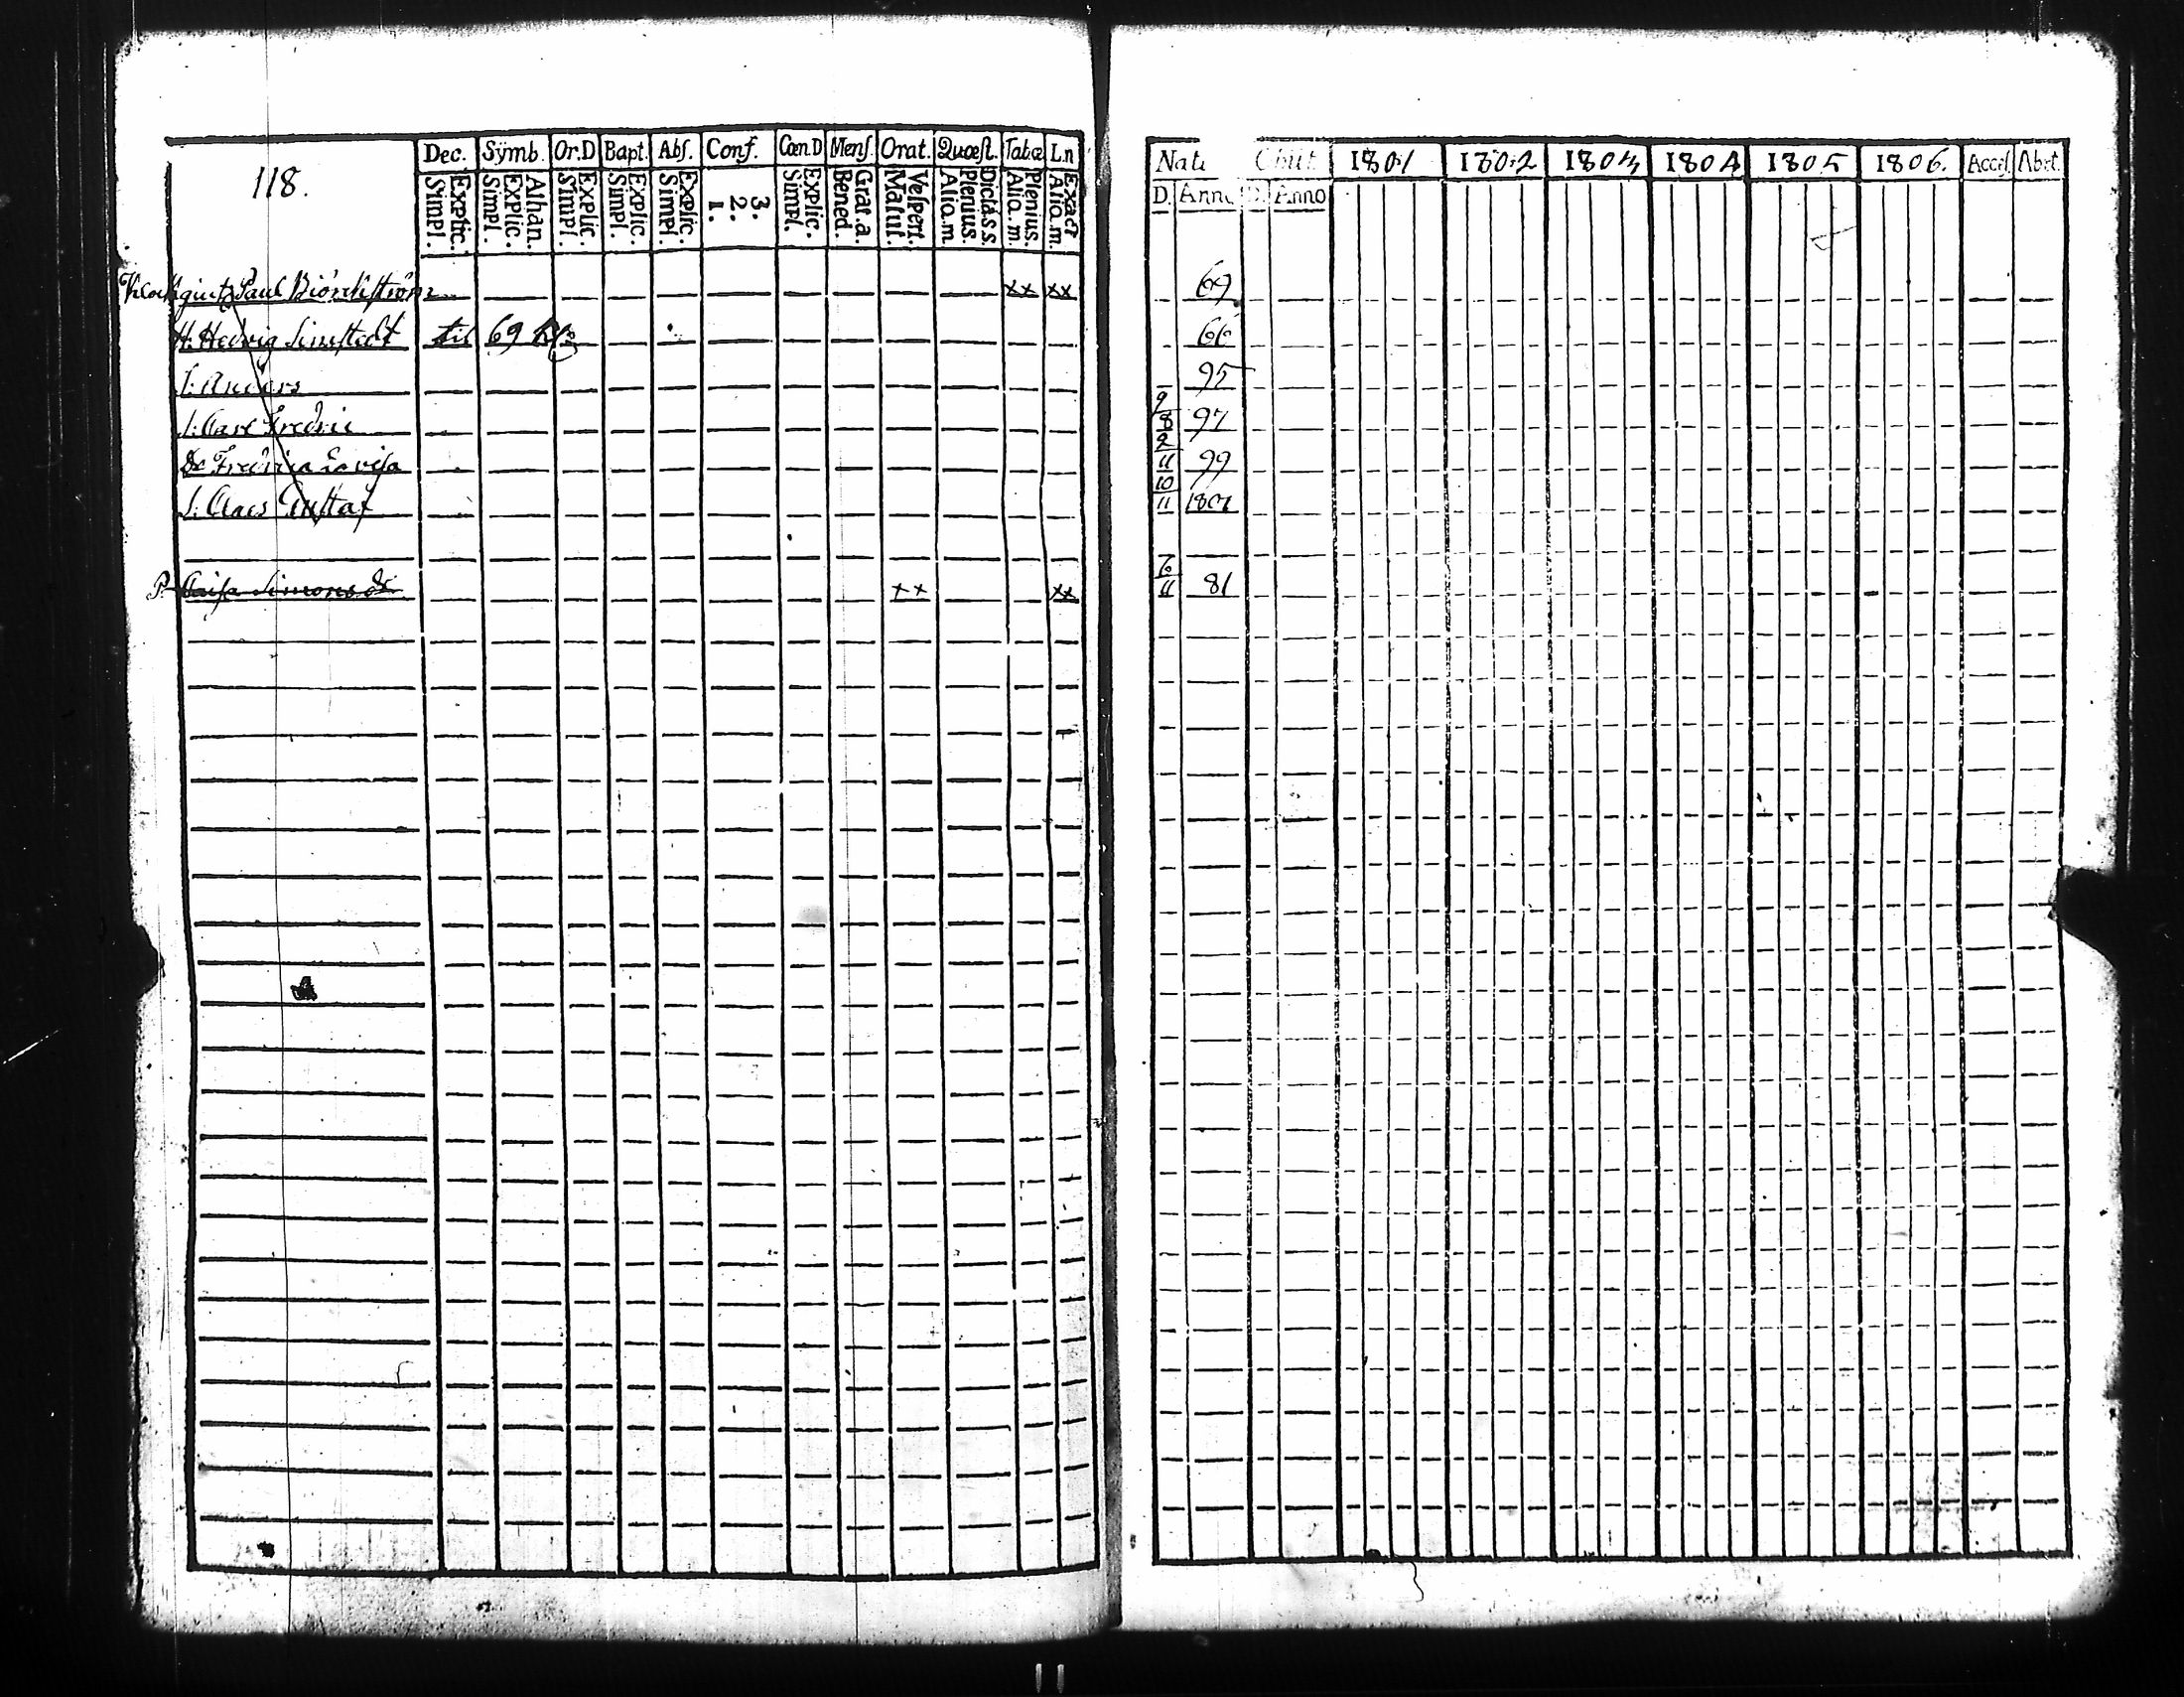 118.
Dec. Symb. Or.D Bapt. Abs. Conf. Cœn.D Mens. Orat. Quæst. Tabæ Ln
Explic. Simpl. Athan. Explic. Simpl. Explic. Simpl. Explic. Simpl. Explic. Simpl. 3. 2. 1. Explic. Simpl. Grat.a. Bened. Vespert. Matut. Dict. a S.S. Plenius. Aliq.m. Plenius. Aliq.m. Exact Aliq.m.
Paul Biörckström xx xx
H. Hedvig til 69
S: Anders
S: Carl Fredric
Dr Fredrica Lovisa
S: Claes Gustaf
P. Caisa Simons dr. ++ xx
Nati Obiit 1801 1802 1803 1804 1805 1806. Acces. Abit.
D. Anno D. Anno
69
66
95
9/8 97
2/11 99
10/11 1801
6/11 81